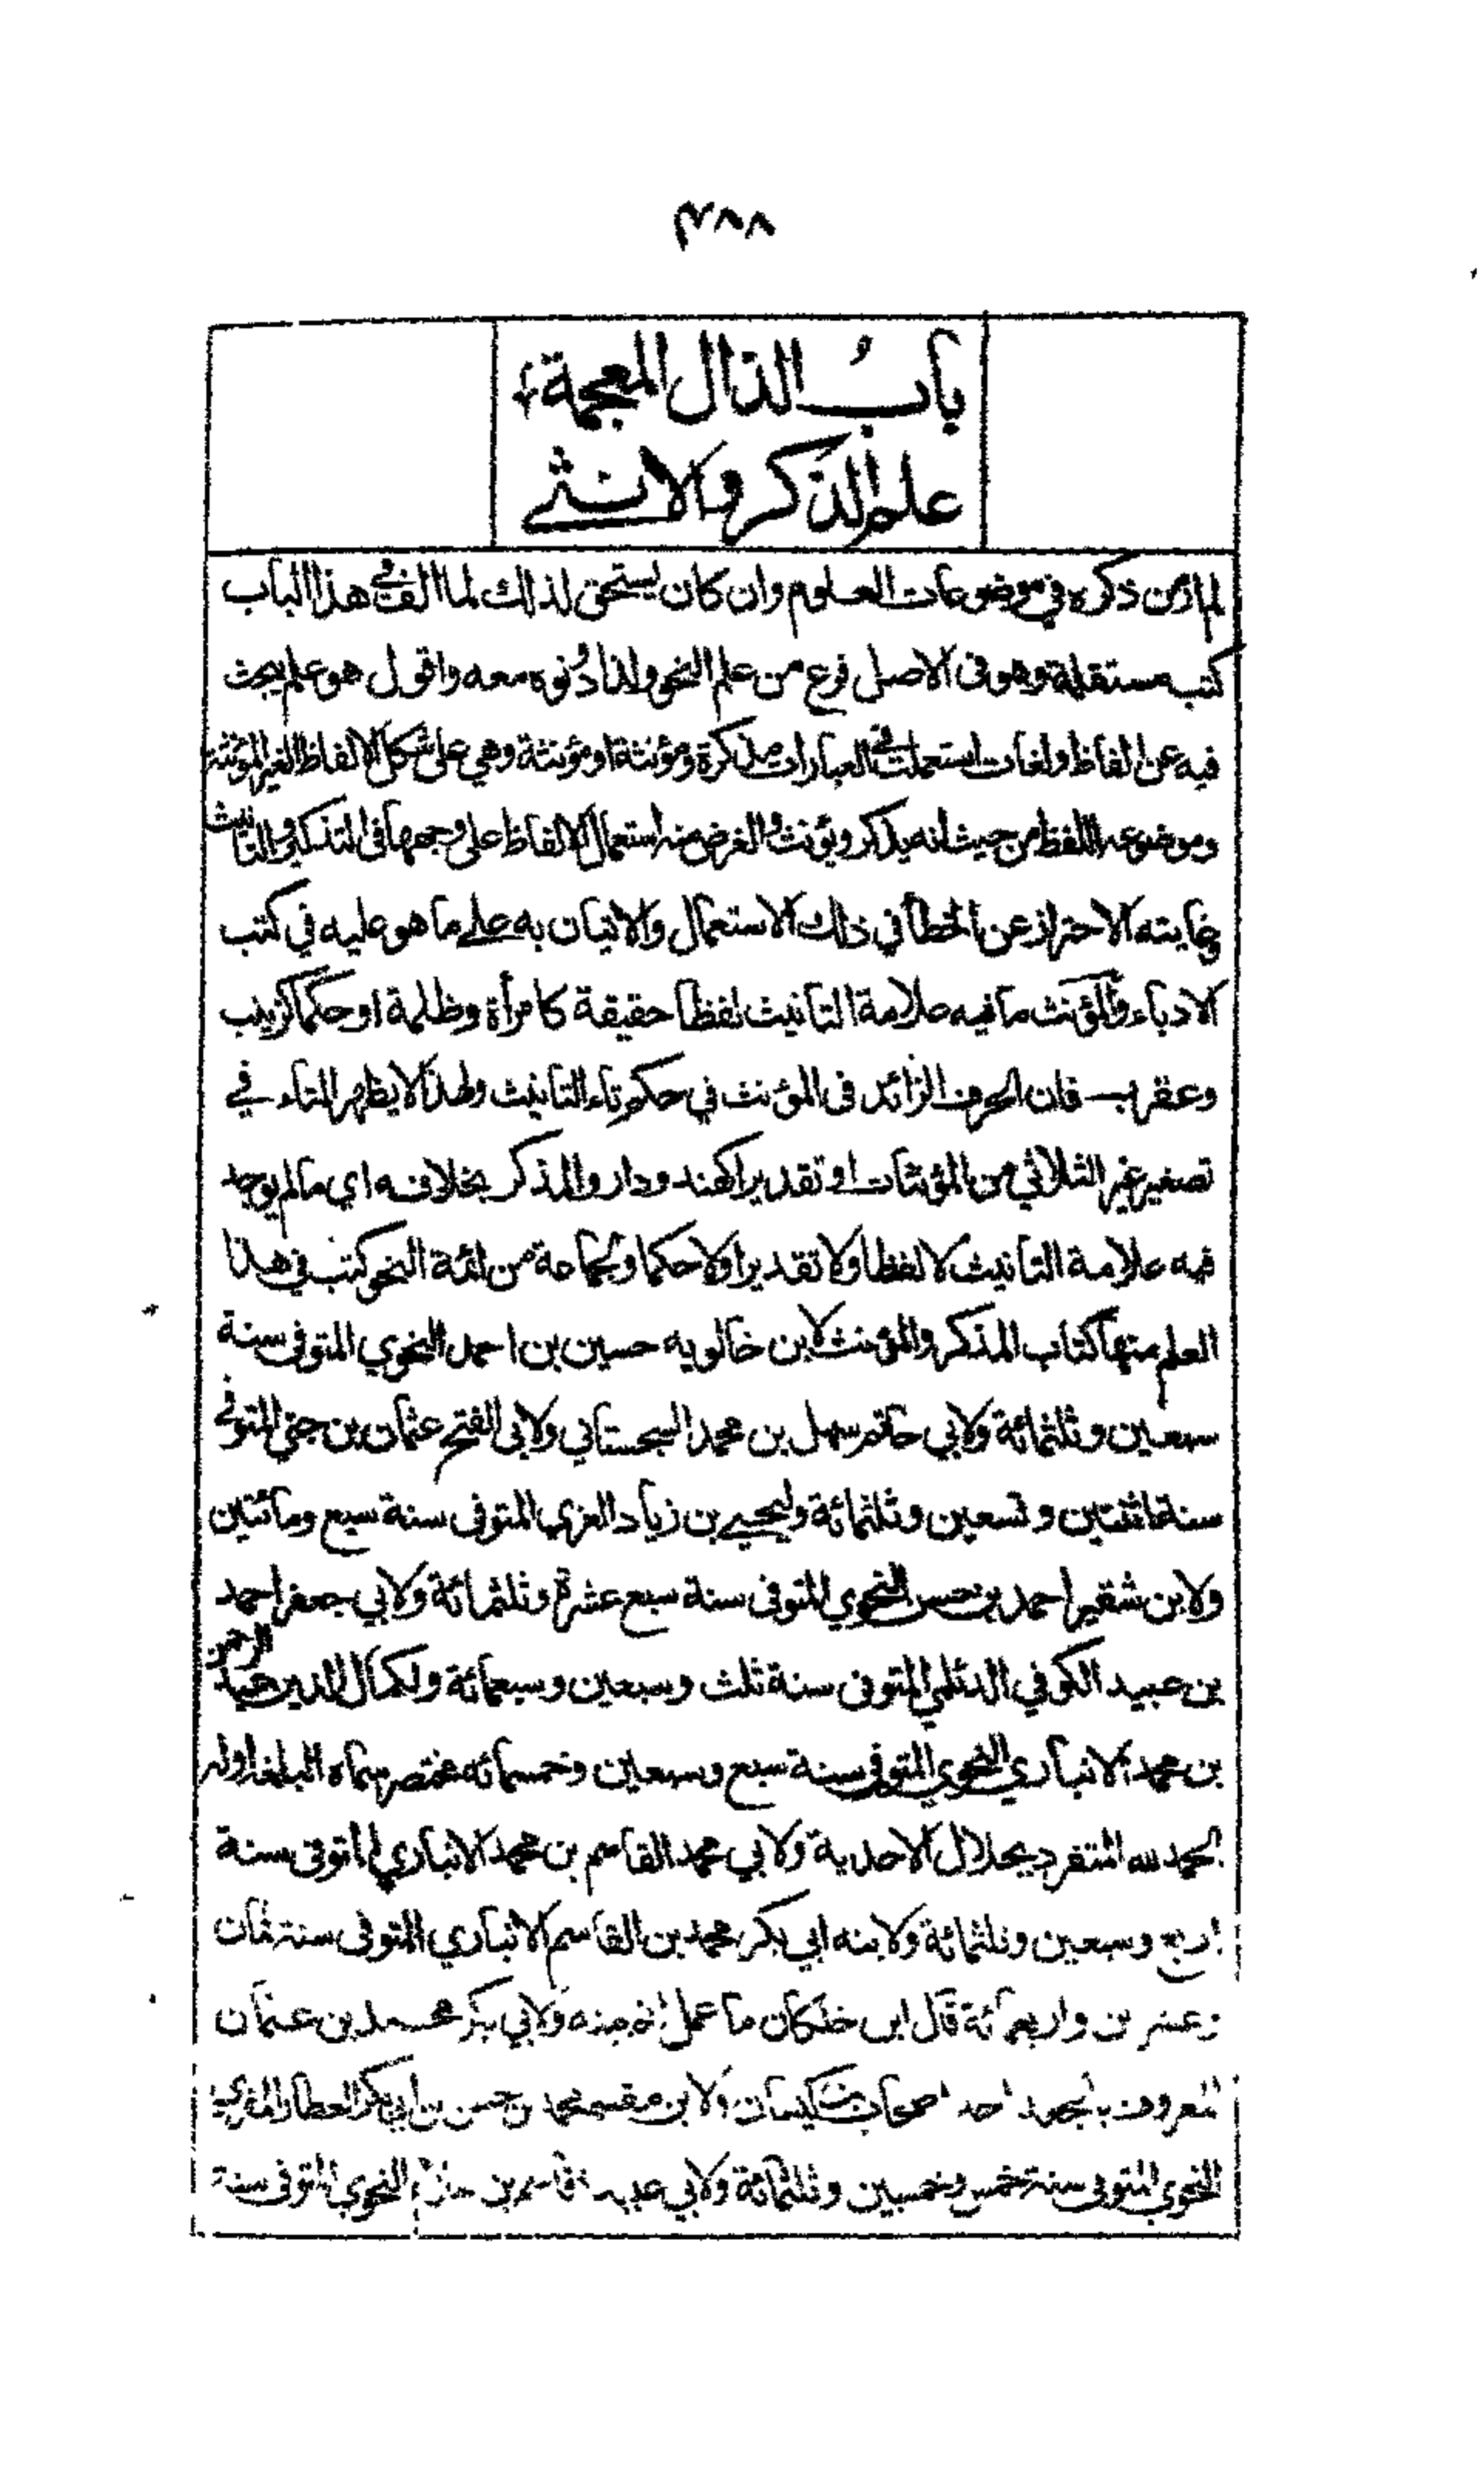 ٣٨٨
باب الذال المعجمة
علم الذكر والانثى
لم ار من ذكره في موضوعات العلوم وان كان يستحق لذلك لما الف في هذا الباب
كتب مستقلة وهو في الاصل فرع من علم النحو ولذا دُنوه معه واقول هو علم يبحث
فيه عن الفاظ ولغات استعملت في العبارات مذكرة ومؤنثة او مؤنثة وهي على شكل الالفاظ الغير المؤنثة
وموضوعه اللفظ من حيث انه يذكر ويؤنث والغرض منه استعمال الالفاظ على وجهها في التذكير والتانيث
وغايته الاحتراز عن الخطأ في ذلك الاستعمال والاتيان به على ما هو عليه في كتب
الادباء والمؤنث ما فيه علامة التانيث لفظا حقيقة كامرأة وظلمة او حكما كزينب
وعقرب فان الحرف الزائد في المؤنث في حكم تاء التانيث ولهذا لا يظهر التاء في
تصغير غير الثلاثي من المؤنثات او تقديرا كهند ودار والمذكر بخلافه اي مالم يوجد
فيه علامة التانيث لا لفظا ولا تقديرا ولا حكما ولجماعة من ائمة النحو كتب في هذا
العلم منها كتاب المذكر والمؤنث لابن خالويه حسين بن احمد النحوي المتوفى سنة
سبعين وثلثمائة ولابي حاتم سهل بن محمد السجستاني ولابي الفتح عثمان بن جني المتوفى
سنة اثنتين وتسعين وثلثمائة وليحيى بن زياد الفراء المتوفى سنة سبع ومائتين
ولابن شقير احمد بن حسن النحوي المتوفى سنة سبع عشرة وثلثمائة ولابي جعفر احمد
بن عبيد الكوفي الديلمي المتوفى سنة ثلث وسبعين وسبعمائة ولكمال الدين عبد الرحمن
بن محمد الانباري النحوي المتوفى سنة سبع وسبعين وخمسمائه مختصر سماه البلغة اوله
الحمد لله المتفرد بجلال الاحدية ولابي محمد القاسم بن محمد الانباري المتوفى سنة
اربع وسبعين وثلثمائة ولابنه ابي بكر محمد بن القاسم الانباري المتوفى سنة ثمان
وعشرين واربعمائة قال ابن خلكان ما عمل اتم منه ولابي بكر محمد بن عثمان
المعروف بالجعد احد اصحاب ابن كيسان ولابن مقسم محمد بن حسن بن ابي بكر العطار المقري
النحوي المتوفى سنة خمس وخمسين وثلثمائة ولابي عبيد قاسم بن سلام النحوي المتوفى سنة